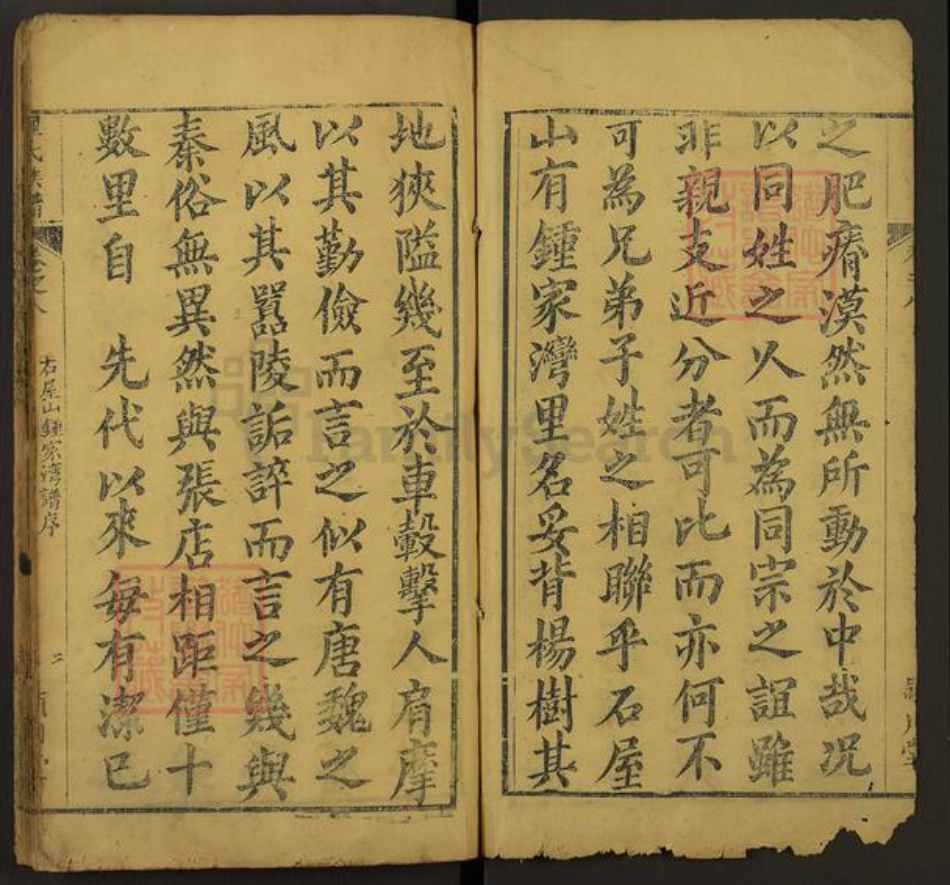 之肥瘠漠然無所動於中哉况
以同姓之人而為同宗之誼雖
非親支近分者可比而亦何不
可為兄弟子姓之相聯乎石屋
山有鍾家灣里名妥背楊樹其
地狹隘幾至於車轂擊人肩摩
以其勤儉而言之似有唐魏之
風以其嚣陵詬誶而言之幾與
秦俗無異然與張店相距僅十
數里自 先代以來每有潔已
卷之八
右屋山鍾家湾譜序
二
FamilySearch